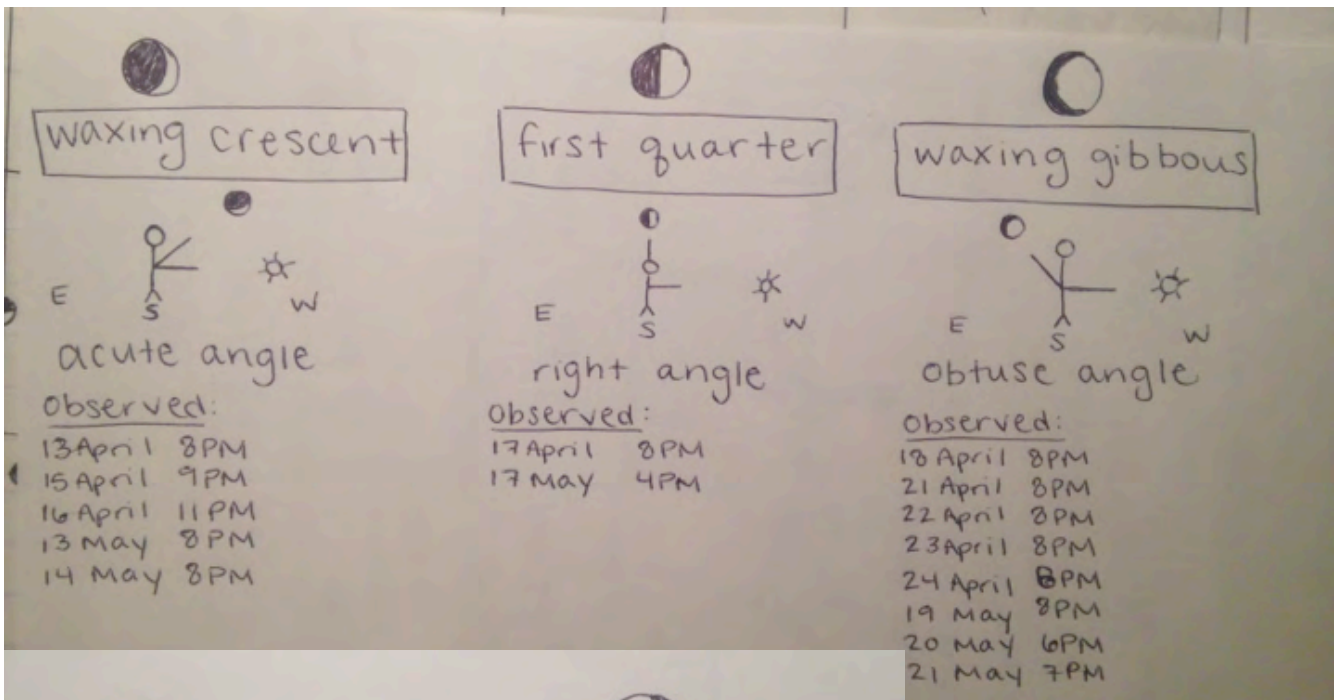 waxing crescent
E
S
W
acute angle
Observed:
13 April 8PM
15 April 9PM
16 April 11PM
13 May 8PM
14 May 8PM
first quarter
E
S
W
right angle
Observed:
17 April 8PM
17 May 4PM
waxing gibbous
E
S
W
obtuse angle
Observed:
18 April 8PM
21 April 8PM
22 April 8PM
23 April 8PM
24 April 8PM
19 May 8PM
20 May 6PM
21 May 7PM